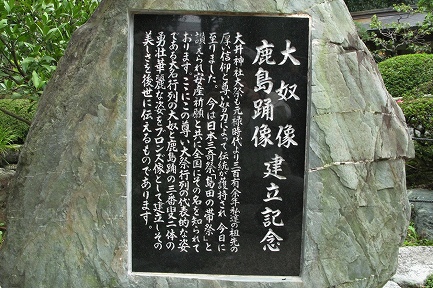 大奴像
鹿島踊像
建立記念
大井神社大祭も元禄時代より三百有余年私達の祖先の
厚い信仰と尊い奴力によって伝統が維持され、今日に
至りました。今は日本三奇祭「島田の帯祭」と
讃えられ、安産祈願と共に全国にその名を知られて
おります。ここにこの尊い大祭行列の代表的な姿
である大名行列の大奴と鹿島踊の三番叟二体の
勇壮華麗な姿をブロンズ像として建立しその
美しさを後世に伝えるものであります。